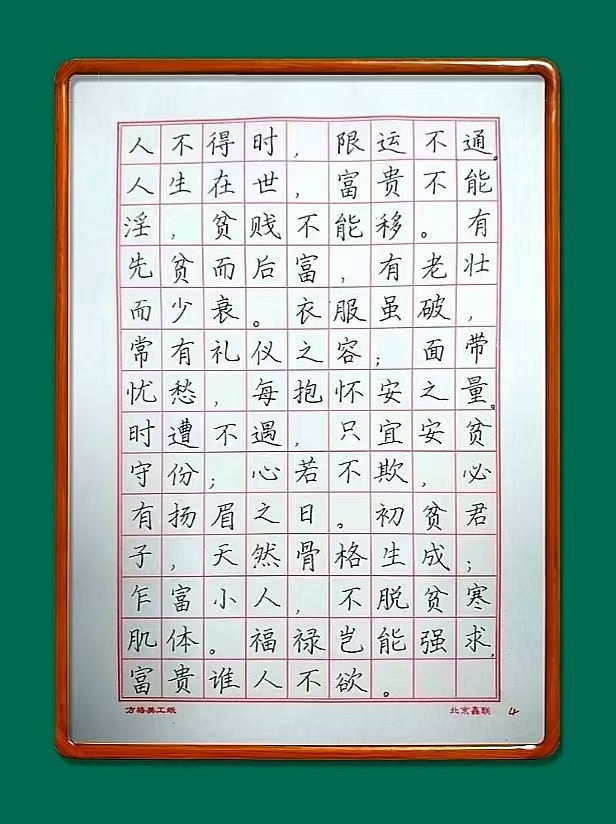 人不得时，限运不通。
人生在世，富贵不能
淫，贫贱不能移。有
先贫而后富，有老壮
而少衰。衣服虽破，
常有礼仪之容；面带
忧愁，每抱怀安之量。
时遭不遇，只宜安贫
守份；心若不欺，必
有扬眉之日。初贫君
子，天然骨格生成；
乍富小人，不脱贫寒
肌体。福禄岂能强求，
富贵谁人不欲。
方格美工纸 北京鑫联 4